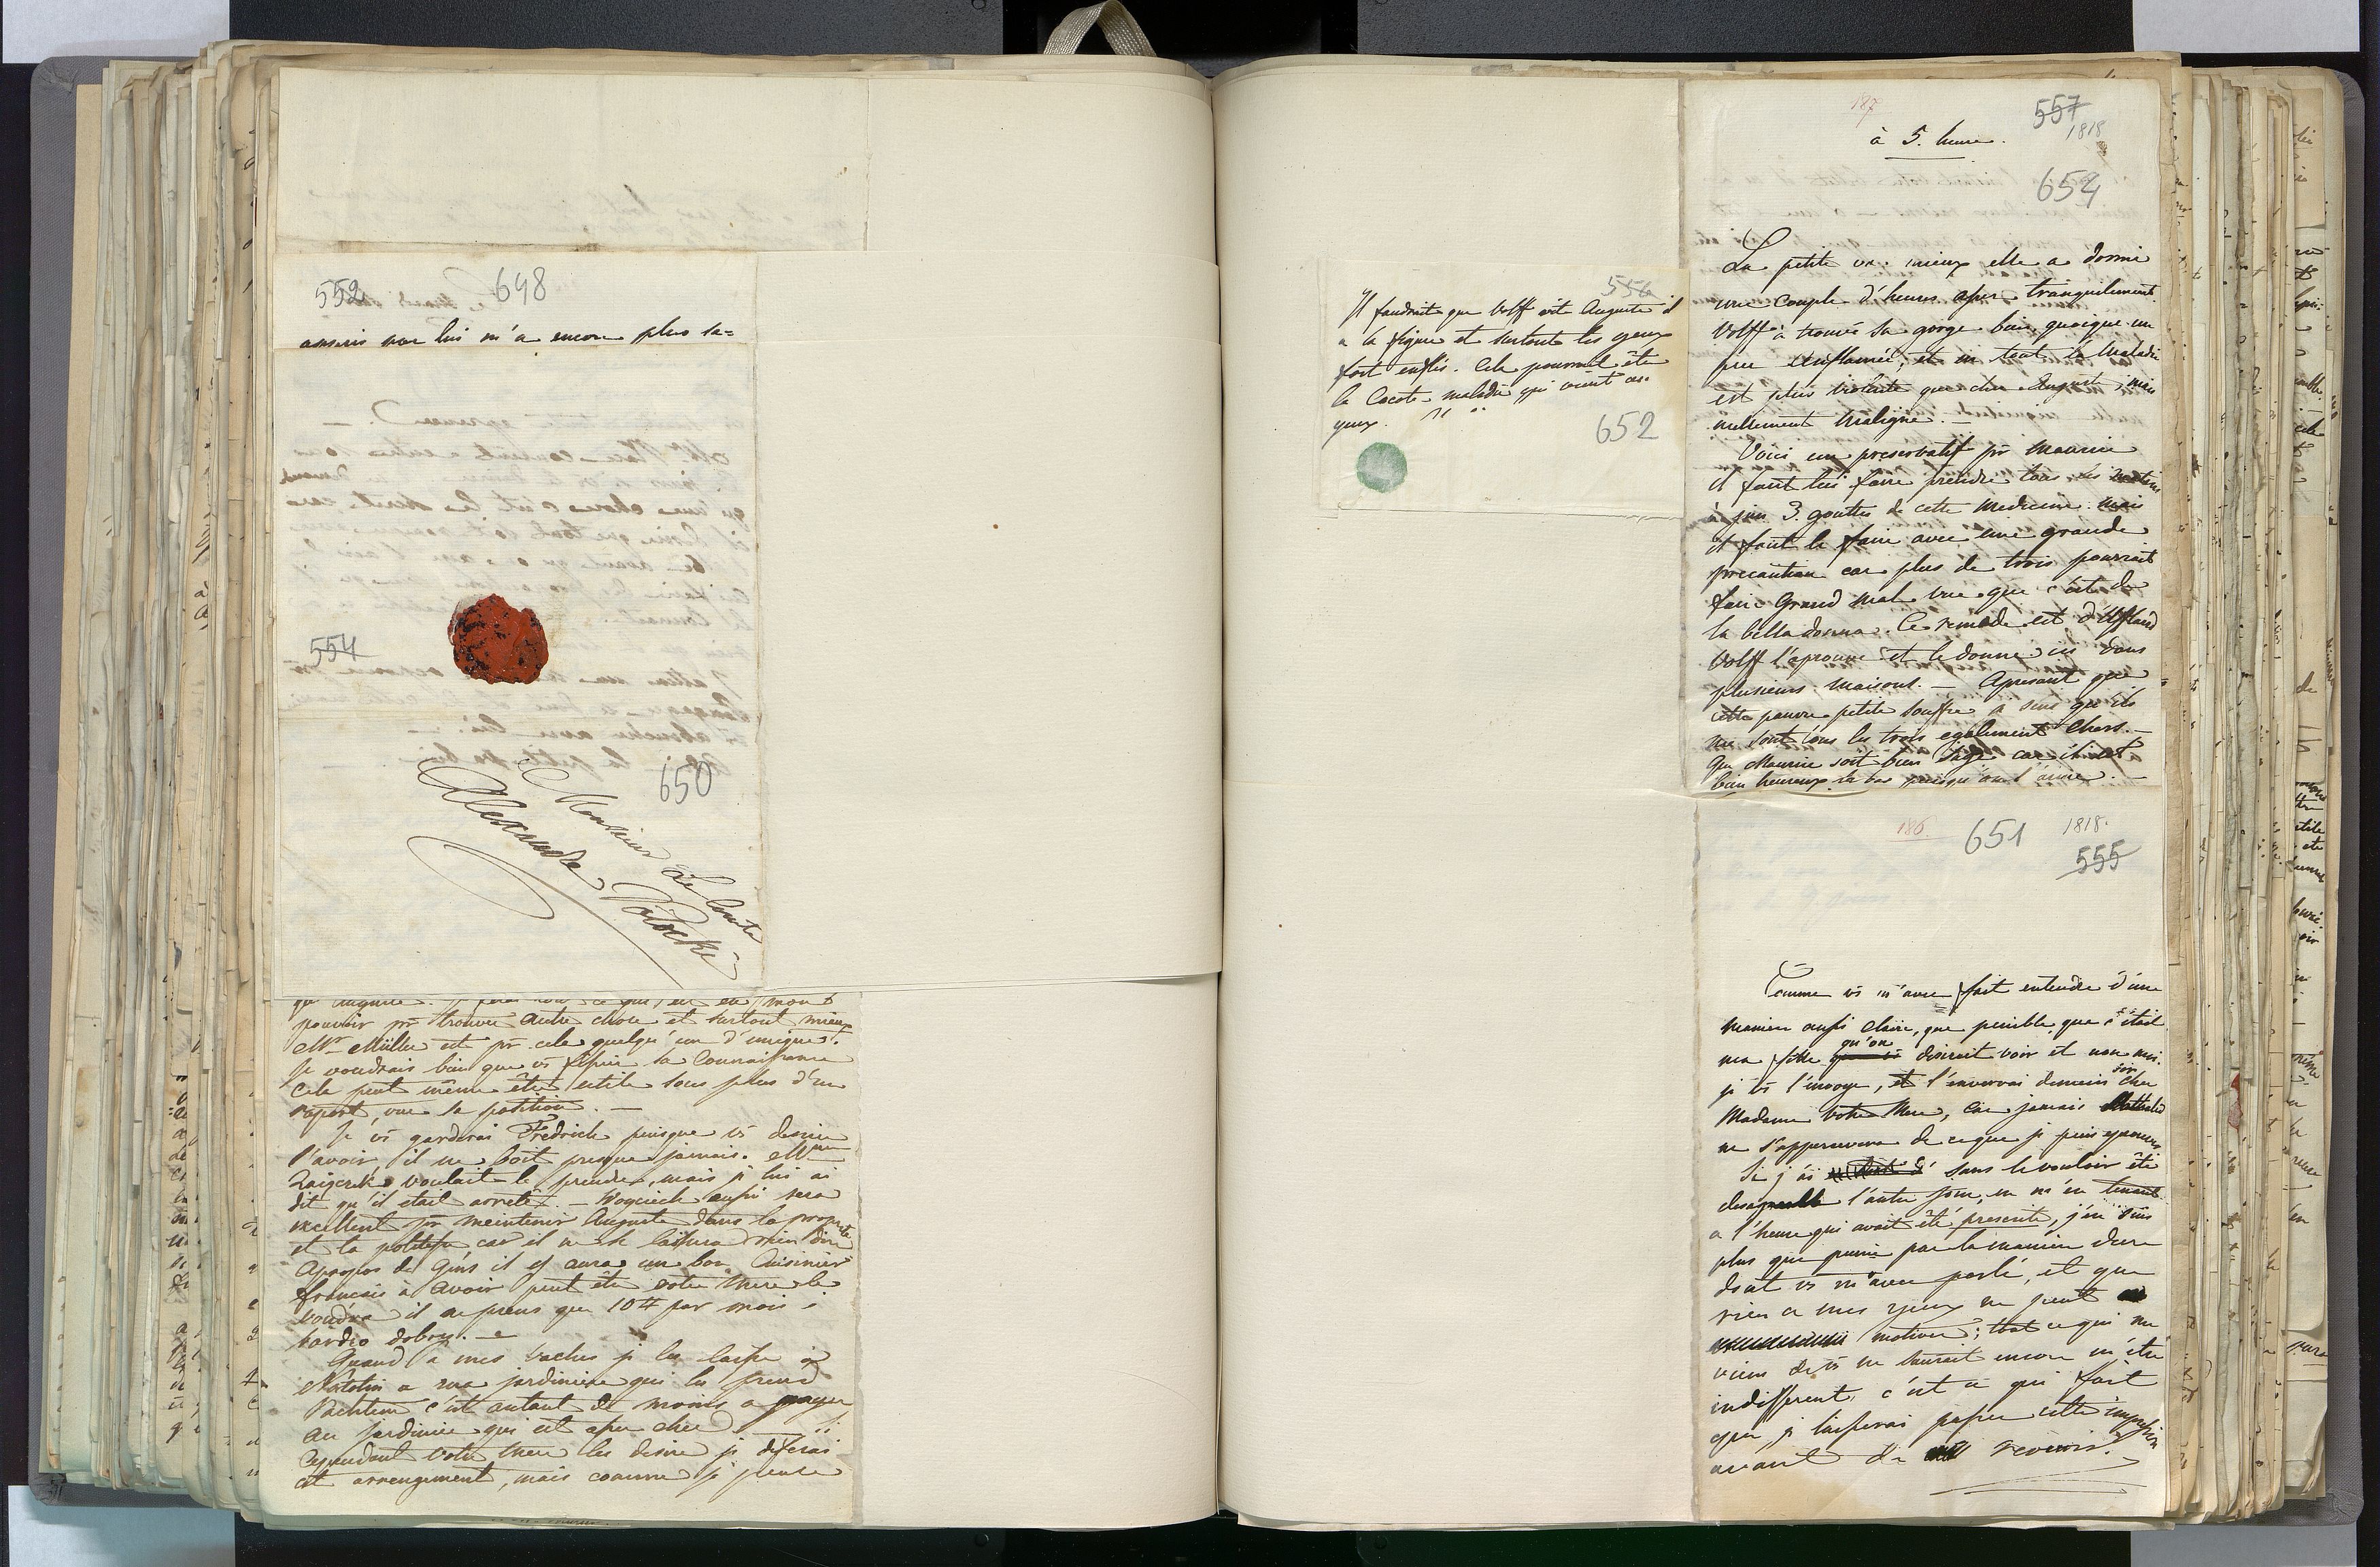 552
648
554
650
à Monsieur
Le Comte
Alexandre Potocki
pouvoir pr trouver autre chose et surtout mieux
Mr Müller est pr cela quelqu'un d'unique.
Je voudrais bien que vs fissiez sa connaissance
cela peut même être utile sous plus d'un
raport, vue sa position. —
Je vs garderai Fredrich puisque vs desirez
l'avoir il ne boit presque jamais. Mme
Zaigcrek voulait le prendre, mais je lui ai
dit qu'il etait arreté. — Woyciech aussi sera
excellent pr maintenir Auguste dans la propreté
et la politesse car il ne se laissera rien dire
Apropos de gens il y aura un bon Cuisinier
francais à avoir peut être votre mere le
voudra il ne prens que 10 # par mois i
bardzo dobry. —
Quand à mes vaches je les laisse à
Natolin a ma jardiniere qui les prend
Pachtem c'est autant de moins a payer
au jardinier qui est assez cher
Cependant votre mere les desire je deferai
cet arrangement, mais comme je pense
556
Il faudrait que Wolff vit Auguste il
a la figure et surtout les yeux
fort enflés. Cela pourrait être
la Cocote maladie qui vient aux
yeux.
652
187
557
1818
à 5. heures.
654
La petite va mieux elle a dormi
une couple d'heures assez tranquilement
Wolff a trouvé sa gorge bien, quoique un
peu enflamée, et en tout la maladie
est plus violente que chez Auguste, mais
nullement maligne. —
Voici un preservatif pr Maurice
il faut lui faire prendre tous les matins
à jeun 3. gouttes de cette medecine. mais
il faut le faire avec une grande
precaution car plus de trois pourrait
faire grand mal vue que c'est de
la belladonna. Ce remede est d'Uffland
Wolff l'aprouve et le donne ici dans
plusieurs maisons. — Apresent que
cette pauvre petite souffre je sens qu'ils
me sont tous les trois egalement chers. —
Que Maurice soit bien sage car il est
bien heureux la bas puisqu'on l'aime. —
186.
651
1818.
555
Comme vs m'avez fait entendre d'une
maniere aussi claire, que penible, que c'était
ma fille qu'on desirait voir et non moi.
je vs l'envoye, et l'enverrai demain soir chez
Madame Votre Mere, car jamais Nathalie
ne s'appercevra de ce que je puis eprouver
Si j'ai sans le vouloir été
desagreable l'autre jour, en m'en tenant
a l'heure qui avait été presente, j'en suis
plus que punie par la maniere dure
dont vs m'avez parlé, et que
rien a mes yeux ne peut
motiver; tout ce qui me
viens de vs ne saurait encore m'être
indifferent, c'est ce qui fait
que je laisserai passer cette impression
avant de revenir.